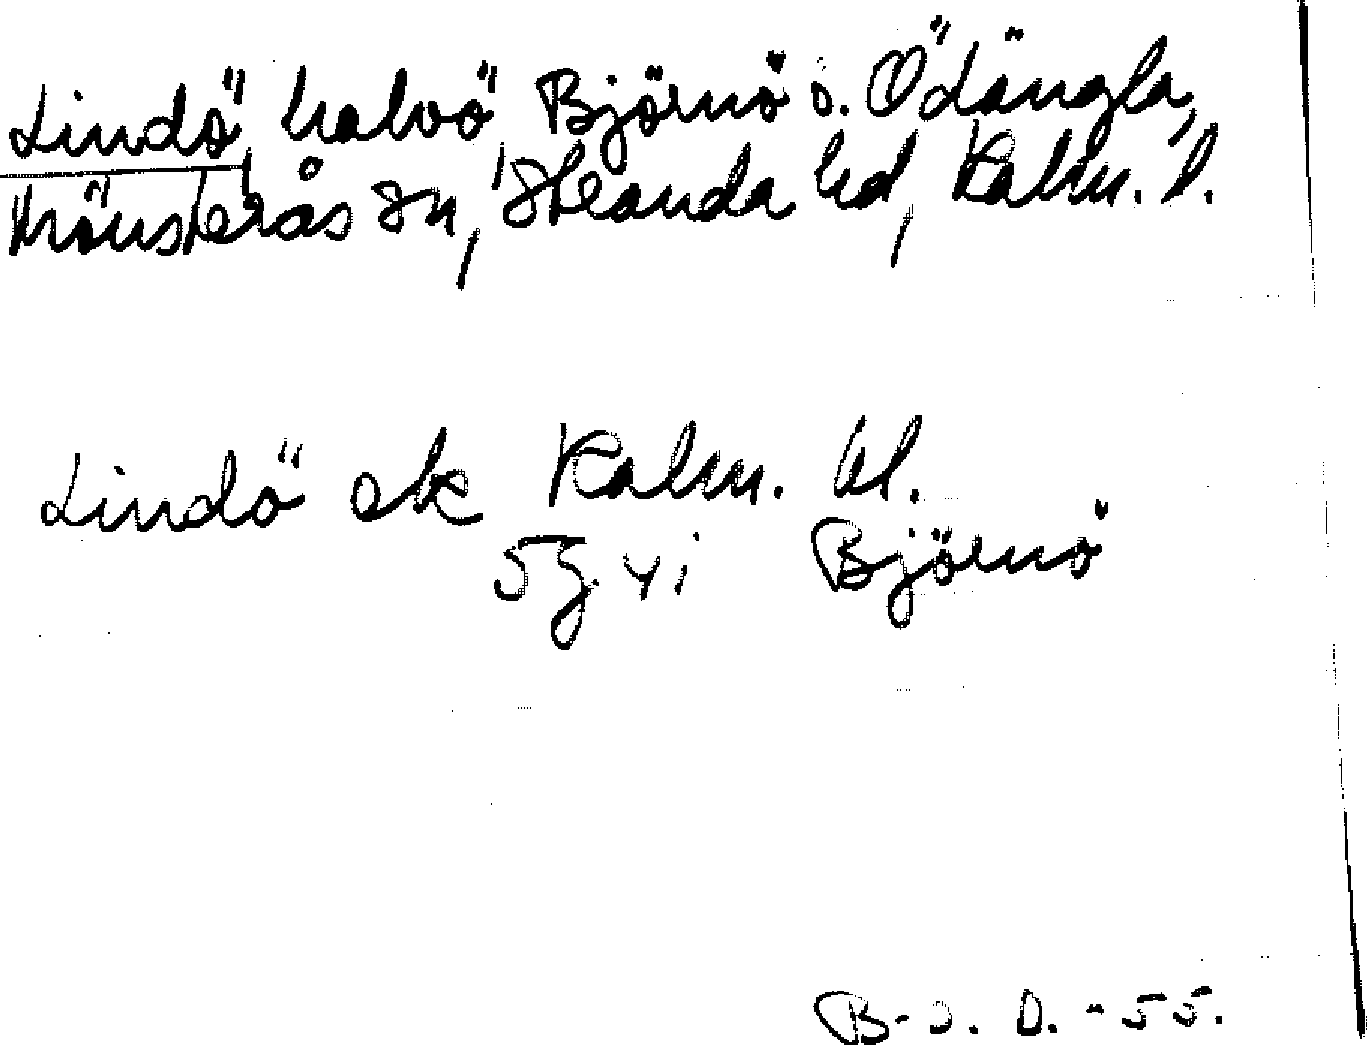 Lindö, halvö, Björnö o. Ödängla,
Mönsterås sn, Stranda hd, Kalm. l.
Lindö ek Kalm. bl.
5g yi Björnö
B-o. D. -55.